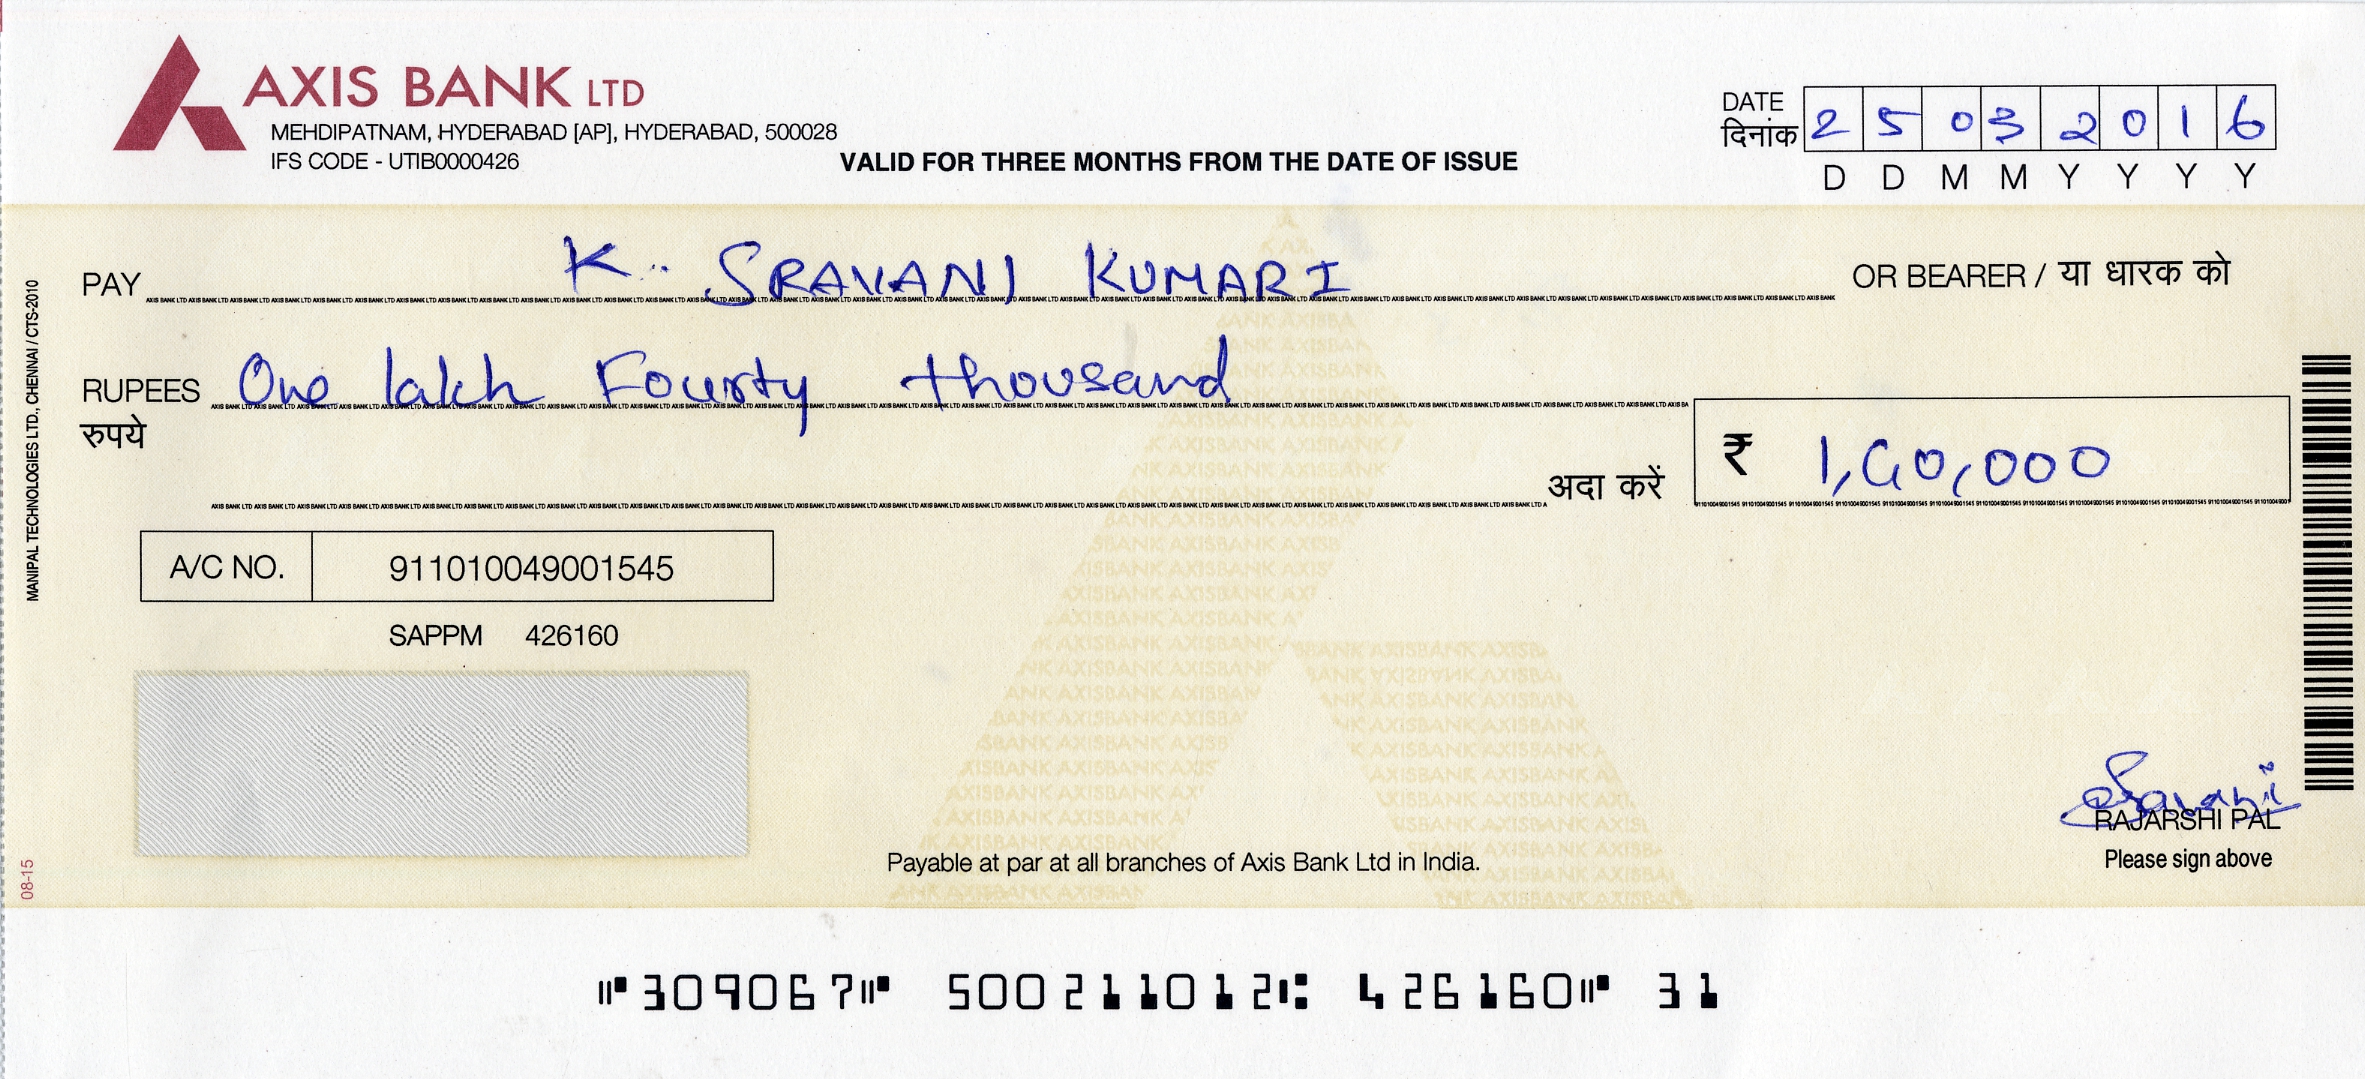 AXIS BANK LTD
MEHDIPATNAM, HYDERABAD [AP], HYDERABAD, 500028
IFS CODE - UTIB0000426
VALID FOR THREE MONTHS FROM THE DATE OF ISSUE
DATE
दिनांक 25032016
D D M M Y Y Y Y
PAY K. SRAVANI KUMARI OR BEARER / या धारक को
RUPEES One lakh Fourty thousand
रुपये
अदा करें ₹ 1,40,000
A/C NO. 911010049001545
SAPPM 426160
VOID
RAJARSHI PAL
Please sign above
Payable at par at all branches of Axis Bank Ltd in India.
MANIPAL TECHNOLOGIES LTD., CHENNAI / CTS-2010
08-15
⑈309067⑈ 500211012⑆ 426160⑈ 31